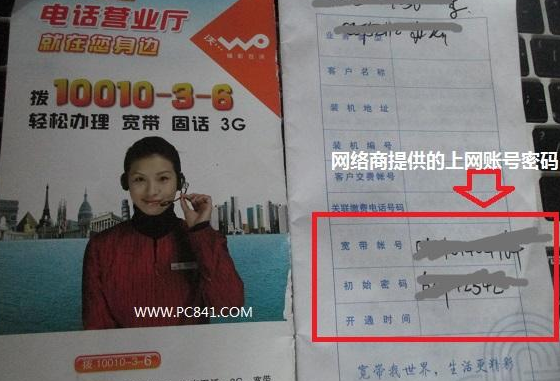 电话营业厅
就在您身边
沃
WO
拨 10010-3-6
轻松办理 宽带 固话 3G
WWW.PC841.COM
拨 10010-3-6
业务类型
客户名称
装机地址
装机编号
网络商提供的上网账号密码
客户交费帐号
关联缴费电话号码
宽带帐号
初始密码
开通时间
宽带我世界,生活更精彩